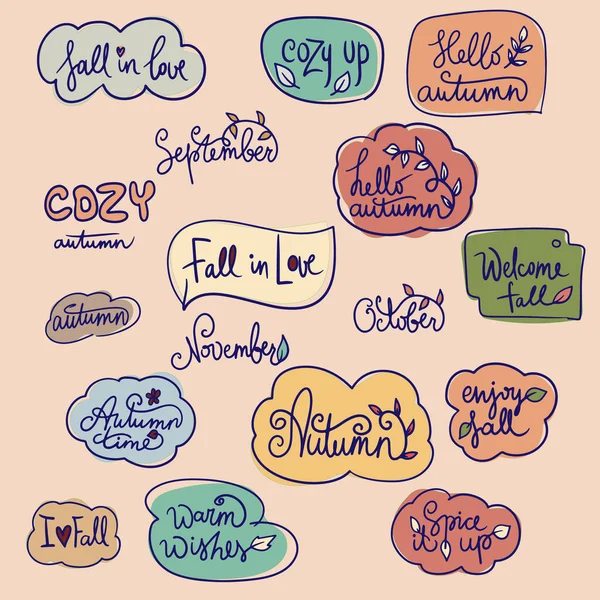 fall in love
cozy up
Hello
autumn
September
hello
autumn
COZY
autumn
Fall in Love
Welcome
fall
autumn
October
November
Autumn
time
Autumn
enjoy
fall
I Fall
Warm
wishes
Spice
it up